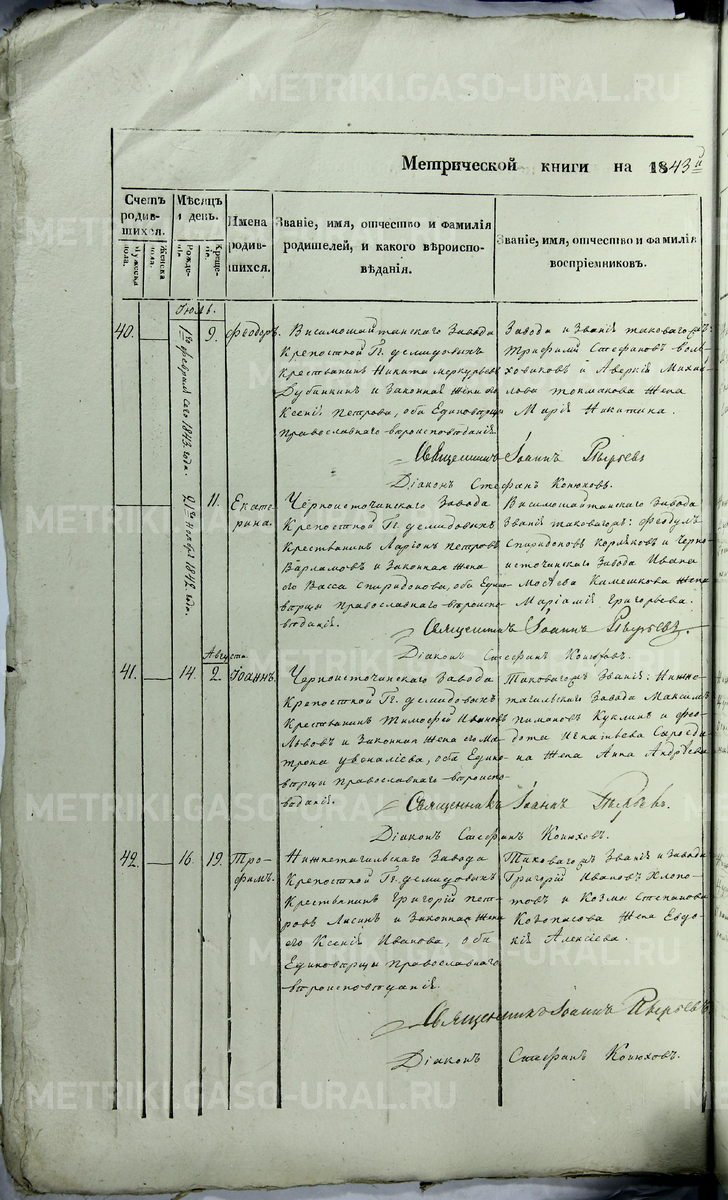 METRIKI.GASO-URAL.RU
Метрической книги на 1843й
Счетъ родив-шихся.
Мужеска пола.
Женска пола.
Мѣсяцъ и день.
Рожде-
Креще-
Имена родив-шихся.
Званіе, имя, отчество и фамилія
родителей, и какого вѣроиспо-
вѣданія.
Званіе, имя, отчество и фамилія
воспріемниковъ.
Іюль.
40.
1го февраля сего 1843. года.
9.
Феодоръ.
Висимошайтанскаго Завода
Крепостной Гг. Демидовыхъ
крестьянинъ Никита Меркурьевъ
Дубинкинъ и Законная Жена его
Ксенія Петрова, оба Единоверцы
православнаго вѣроисповѣданія.
Завода и Званія таковагожъ:
Трифилій Стефановъ
и Аверкія Михай-
лова Токманова Жена
Марія Никитина.
Священникъ Іоаннъ Пырьевъ
Діаконъ Стефанъ Конюховъ.
21го Ноября 1842. года.
11.
Екате-
рина.
Черноисточинскаго Завода
Крепостной Гг. Демидовыхъ
Крестьянинъ Ларіонъ Петровъ
Варламовъ и Законная Жена
его Васса Спиридонова, оба Едино-
вѣрцы православнаго вѣроиспо-
вѣданія.
Висимошайтанскаго Завода
Званія таковагожъ: Феодулъ
Спиридоновъ Кормковъ и Черно-
источинскаго Завода Ивана
Камешкова Жена
Маріамія Григорьева.
Священникъ Іоаннъ Пырьевъ.
Діаконъ Стефанъ Конюховъ.
Августа
41.
14.
2.
Іоаннъ.
Черноисточинскаго Завода
Крепостной Гг. Демидовыхъ
Крестьянинъ Тимофей Ивановъ
Львовъ и Законная Жена его Ма-
трона Увеналіева, оба Едино-
вѣрцы православнаго вѣроиспо-
вѣданія.
Таковагожъ Званія: Нижне-
тагильскаго Завода Максимъ
Пимановъ Куклинъ и Фео-
дота Игнатьева
на Жена Анна Андрѣева
Священникъ Іоаннъ Пырьевъ.
Діаконъ Стефанъ Конюховъ.
42.
16.
19.
Тро-
фимъ.
Нижнетагильскаго Завода
Крепостной Гг. Демидовыхъ
Крестьянинъ Григорій Пет-
ровъ Лисинъ и Законная Жена
его Ксенія Иванова, оба
Единовѣрцы православнаго
вѣроисповѣданія.
Таковагожъ Званія и Завода
Григорій Ивановъ Хлопо-
товъ и Козмы Степанова
Козопасова Жена Евдо-
кія Алексіева.
Священникъ Іоаннъ Пырьевъ.
Діаконъ Стефанъ Конюховъ.